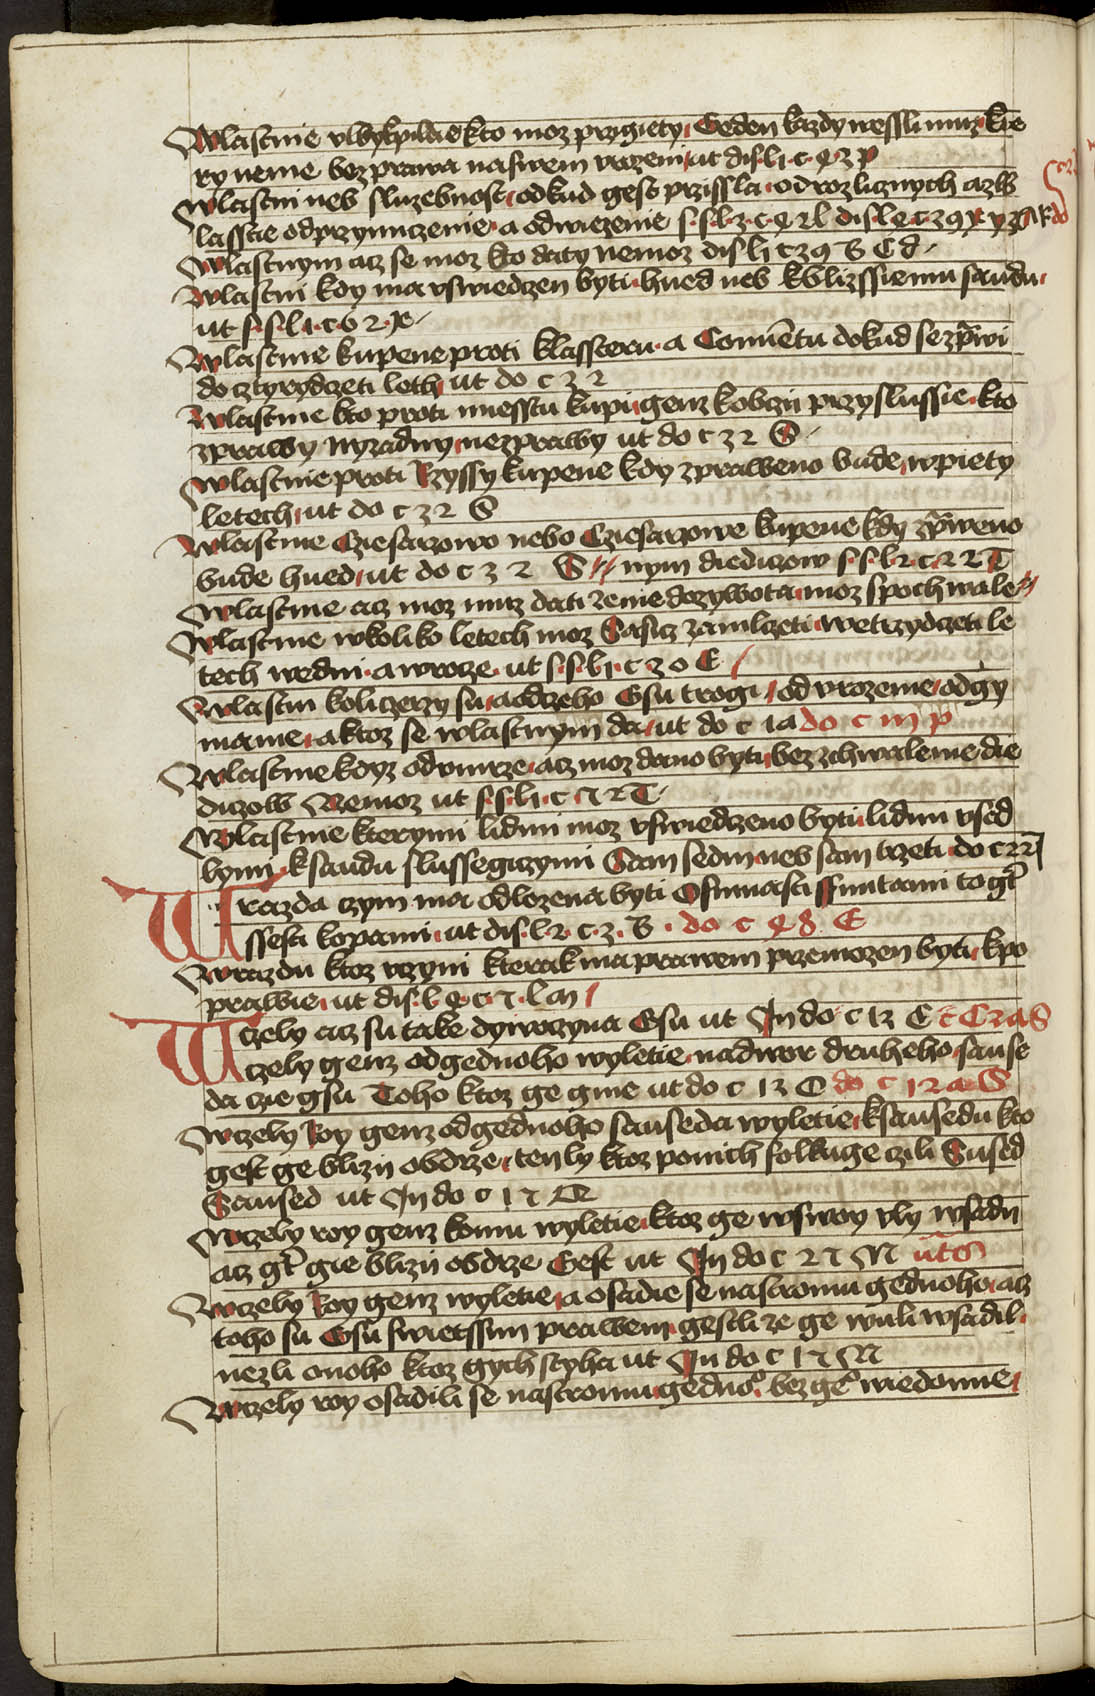 Wlastnie vlbykyilde kto moz przigiety Geden kazdy wessli muz kte
ry neme bez prawa naswem vrozeni ut dis l1 c 4 z p
Wlastni neb sluzebnost odkud gest przissla od rozlicznych
lasstie odprzymuczenie a odwiezenie s s l z c 4 2 l dis l e c z 9
Wlastnym acz se moz kto daty nemoz dis l1 c z 9 S C d
Wlastni kdy ma vswiedczen byti hned neb kblizssiemu saudu
ut s s l 1 c 6 2
Wlastnie kupene proti klassteru a Conuentu dokud se zprawi
do cztyrydczeti leth ut do c z 2
Wlastnie kto proti miesstu kupi genz kobczii przyslussie kto
zprawy nyzadny nezprawy ut do c z 2 S
Wlastnie proti Rzyssy kupene kdy zpraweno bude wpiety
letech ut do c z 2 S
Wlastnie Cziesarzowo nebo Cziesarzowe kupene kdy zpraweno
bude hned ut do c z 2 S nym diediczow s s l 2 c 2 2 T
Wlastnie acz moz muz dati zenie dozywota moz spochwale
Wlastnie wkoliko letech moz Sasicz zamlczeti wetrzydczeti le
tech wedni a wrocze ut s s l 1 c z 0 E
Wlastni koliczerzy su a odczeho Gsu trogi od vrozenie od gy
manie a ktoz se wlastnym da ut do c 1 a do c m p
Wlastnie kdyz od vmrze acz moz dano byti bez zchwalenie die
diczow Nemoz ut s s l 1 c 7 2 T
Wlastnie kterymi lidmi moz vswiedczeno byti lidmi vsed
lymi ksaudu slussegiczymi Sam sedm neb sam trzeti do c 22
Wrazda czym ma odlozena byti Osmnasti ffuntami to gt
ssesti kopami ut dis l 2 c z B do c 4 8 E
Wrazdu ktoz vczyni kterak ma prawem przemozen byti kpo
prawie ut dis l 4 c 7 l m
Wczely acz su take dywoczyna Gsu ut In do c 1z C
Wczely genz odgednoho wyletie nadwor druheho sause
da czie gsu Toho ktoz ge gme ut do c 1z O do c 12 a S
Wczely Roy genz odgednoho sauseda wyletie ksausedu kto
gest ge blizii obdrze ten ly ktoz ponich folkuge czili Sused
Saused ut In do c 1 7
Wczely roy genz komu wyletie ktoz ge wswoy vly wsadii
acz gt gie blizii obdrze Gest ut In do c 2 7 M ut S
Wczely Roy genz wyletie a osadie se nastromu gednoho acz
toho su Gsu swietssim prawem gestli ze ge wuli wsadil
nezli onoho ktoz gych styha ut In do c 1 7 M
Wczely roy osadili se nastromu gednoo bez geo wiedomie